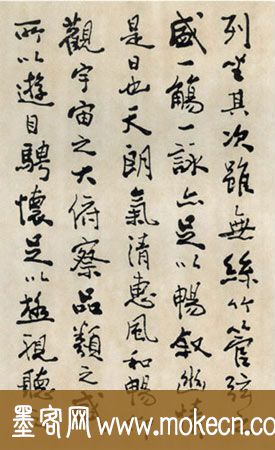 列坐其次雖無絲竹管弦
盛一觴一詠亦足以暢敘幽情
是日也天朗氣清惠風和暢
觀宇宙之大俯察品類之盛
所以遊目騁懷足以極視聽
墨客网 www.mokecn.com